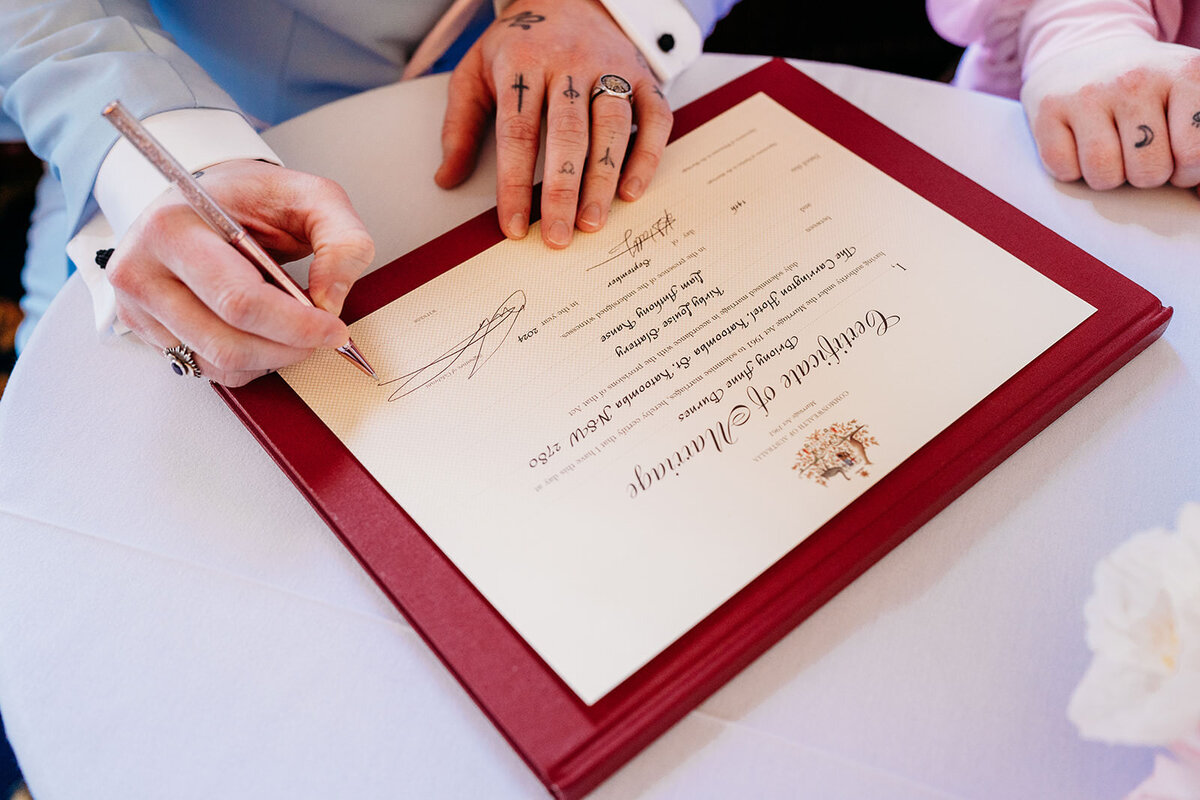 COMMONWEALTH OF AUSTRALIA
Marriage Act 1961
Certificate of Marriage
I, Briony Anne Burnes
having authority under the Marriage Act 1961 to solemnise marriages, hereby certify that I have this day at
The Carrington Hotel, Katoomba St. Katoomba NSW 2780
duly solemnised marriage in accordance with the provisions of that Act
between Kirby Louise Slattery
and Liam Anthony Ranse
in the presence of the undersigned witnesses.
Dated this 14th day of September in the year 2024
WITNESS